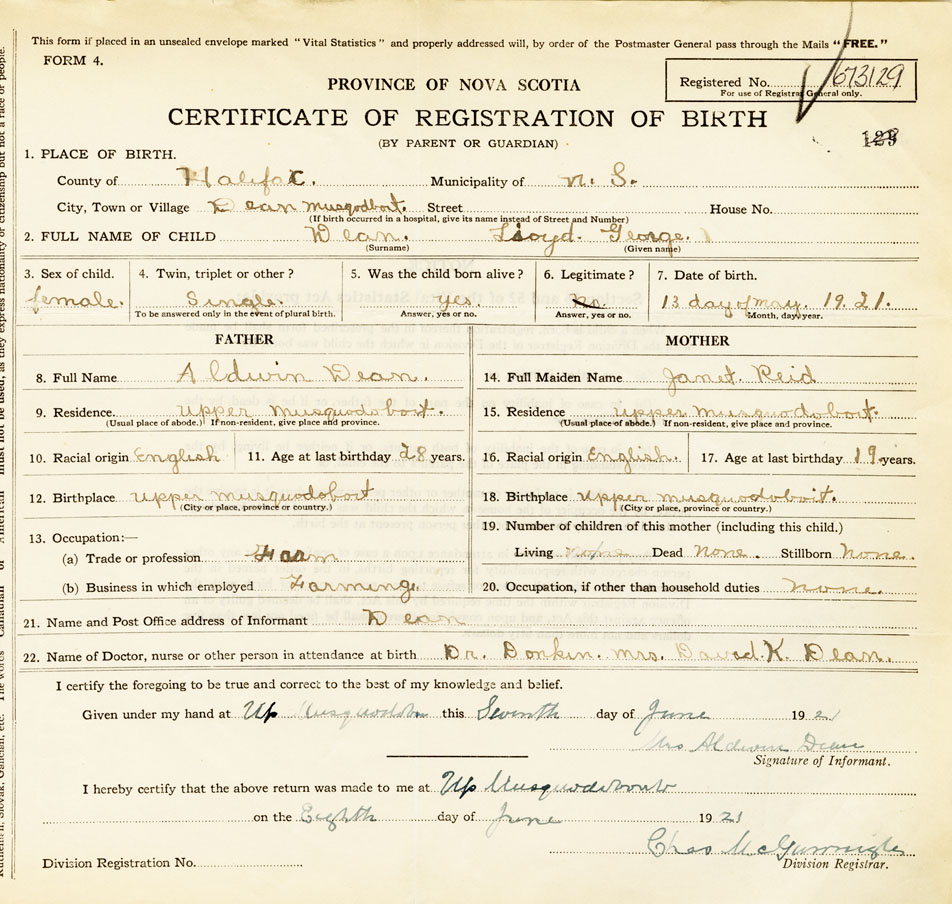 This form if placed in an unsealed envelope marked "Vital Statistics" and properly addressed will, by order of the Postmaster General pass through the Mails "FREE."
FORM 4.
Registered No. 673129
For use of Registrar General only.
PROVINCE OF NOVA SCOTIA
CERTIFICATE OF REGISTRATION OF BIRTH
(BY PARENT OR GUARDIAN)
1. PLACE OF BIRTH.
County of Halifax. Municipality of N. S.
City, Town or Village Dean Musqodboit. Street House No.
(If birth occurred in a hospital, give its name instead of Street and Number)
2. FULL NAME OF CHILD Dean. Lloyd. George.
(Surname) (Given name)
3. Sex of child. 4. Twin, triplet or other? 5. Was the child born alive? 6. Legitimate? 7. Date of birth.
female. Single. yes. no. 13 day of may. 1921.
To be answered only in the event of plural birth. Answer, yes or no. Answer, yes or no. Month, day, year.
FATHER MOTHER
8. Full Name Aldwin Dean. 14. Full Maiden Name Janet. Reid
9. Residence. Upper Musquodoboit. 15. Residence Upper Musquodoboit.
(Usual place of abode.) If non-resident, give place and province. (Usual place of abode.) If non-resident, give place and province.
10. Racial origin English 11. Age at last birthday 28 years. 16. Racial origin English. 17. Age at last birthday 19. years.
12. Birthplace Upper Musquodoboit 18. Birthplace Upper Musquodoboit.
(City or place, province or country.) (City or place, province or country.)
19. Number of children of this mother (including this child.)
13. Occupation:—
(a) Trade or profession Farm Living none Dead none. Stillborn none.
(b) Business in which employed Farming. 20. Occupation, if other than household duties none.
21. Name and Post Office address of Informant Dean
22. Name of Doctor, nurse or other person in attendance at birth Dr. Donkin. Mrs. David. K. Dean.
I certify the foregoing to be true and correct to the best of my knowledge and belief.
Given under my hand at Up this Seventh day of June 1921
Mrs Aldwin Dean
Signature of Informant.
I hereby certify that the above return was made to me at Up Musquodoboit
on the Eighth day of June 1921
Chas
Division Registration No. Division Registrar.